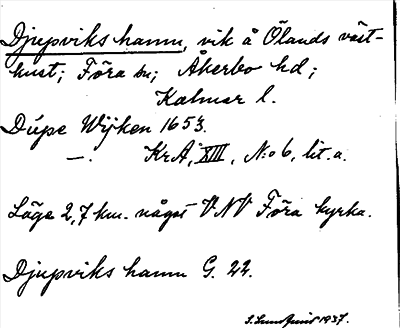 Djupviks hamn, vik å Ölands väst-
kust; Föra sn; Åkerbo hd;
Kalmar l.
Dúpe Wijken 1653.
—. KrA, XIII, N:o 6, lit. a.
Läge 2,7 km. något VNV Föra kyrka.
Djupviks hamn G. 22.
1937.